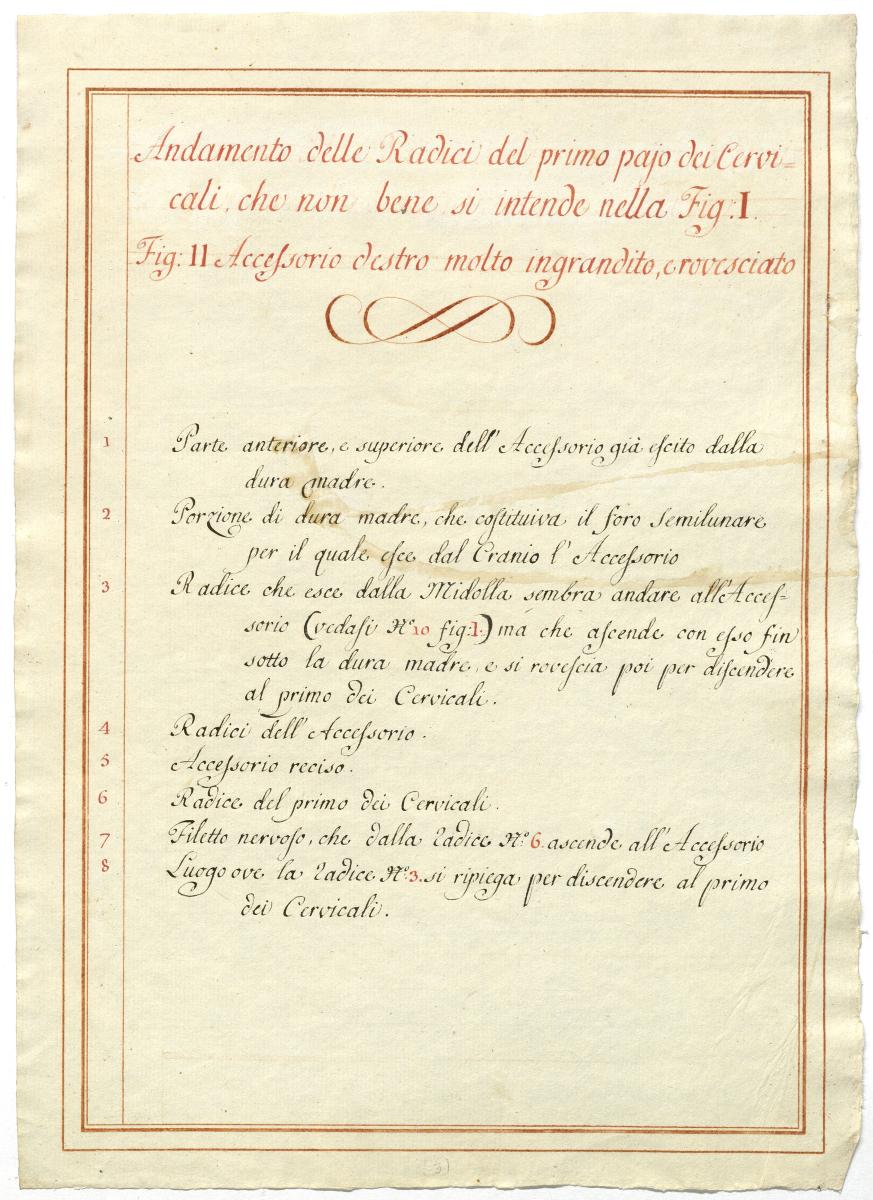 Andamento delle Radici del primo pajo dei Cervi=
cali, che non bene si intende nella Fig: I.
Fig: II Accessorio destro molto ingrandito, e rovesciato
1 Parte anteriore, e superiore dell'Accessorio già escito dalla
dura madre.
2 Porzione di dura madre, che costituiva il foro semilunare
per il quale esce dal Cranio l'Accessorio
3 Radice che esce dalla Midolla sembra andare all'Acces=
sorio (vedasi N.º 10 fig: I.) ma che ascende con esso fin
sotto la dura madre, e si rovescia poi per discendere
al primo dei Cervicali.
4 Radici dell'Accessorio.
5 Accessorio reciso.
6 Radice del primo dei Cervicali.
7 Filetto nervoso, che dalla radice N.º 6. ascende all'Accessorio
8 Luogo ove la radice N.º 3. si ripiega per discendere al primo
dei Cervicali.
(3)